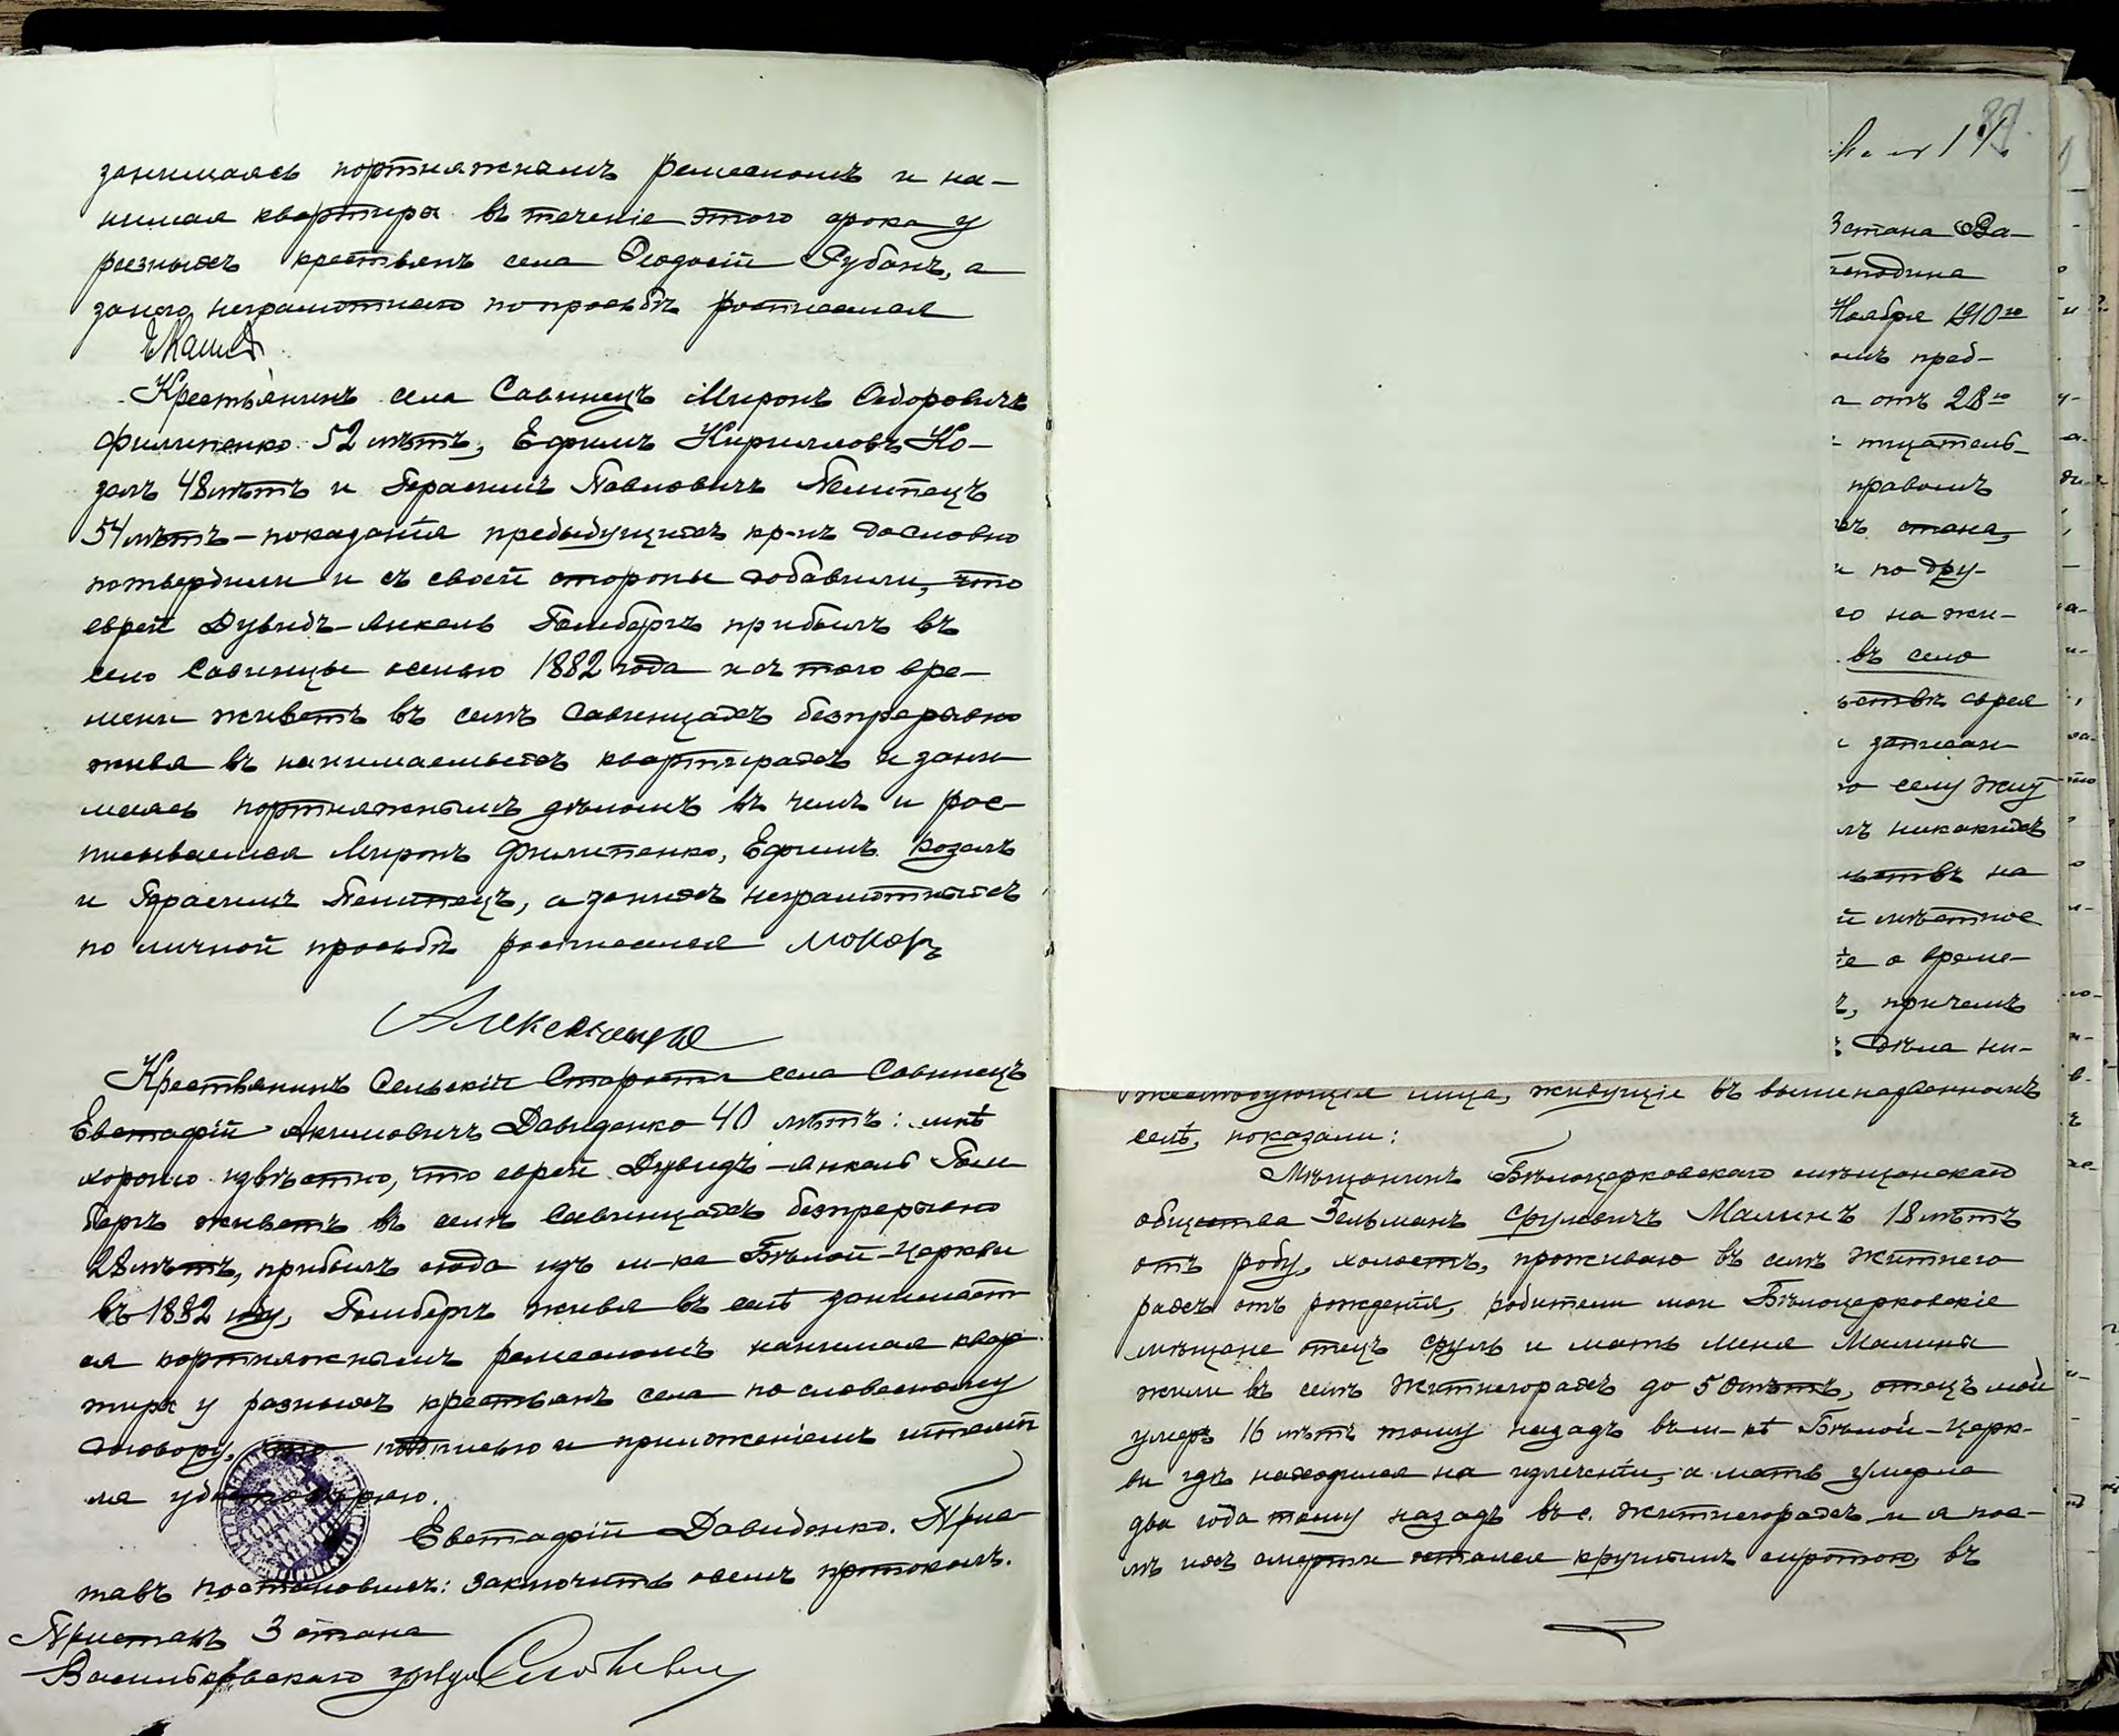 занимаясь портняжнымъ ремесломъ и на-
нимая квартиры въ теченіе этого срока у
разныхъ крестьянъ села Ѳеодосій Рубанъ, а
занего неграмотнаго по просьбѣ росписался
Крестьянинъ села Савинецъ Миронъ Ѳедоровичъ
Филипенко 52 лѣтъ, Ефимъ Кирилловъ Ко-
залъ 48 лѣтъ и Герасимъ Павловичъ
54 лѣтъ – показанія предыдущихъ кр-нъ дословно
потвердили и съ своей стороны добавили, что
еврей Дувидъ-Янкель Гольбергъ прибылъ въ
село Савинцы осенью 1882 года и съ того вре-
мени живетъ въ селѣ Савинцахъ безпрерывно
живя въ нанимаемыхъ квартирахъ и зани-
маясь портняжнымъ дѣломъ въ чемъ и рос-
писываемся Миронъ Филипенко, Ефимъ Козалъ
и Герасимъ, а занихъ неграмотныхъ
по личной просьбѣ росписался Мокар
Крестьянинъ Сельскій Староста села Савинецъ
Евстафій Акимовичъ Давиденко 40 лѣтъ: мнѣ
хорошо извѣстно, что еврей Дувидъ-Янкель Голь
бергъ живетъ въ селѣ Савинцахъ безпрерывно
28 лѣтъ, прибылъ сюда изъ м-ка Бѣлой-Церкви
въ 1882 году, Гольбергъ живя въ селѣ занимает
ся портняжнымъ ремесломъ нанимая квар
тиры у разныхъ крестьянъ села по словесному
договору, что подписью и приложеніемъ штемпе
ля удостовѣряю.
Евстафій Давиденко. При-
ставъ постановилъ: заключить осемъ протоколъ.
Приставъ 3 стана
Васильковскаго уѣзда
89
3 стана Ва-
Ноября 1910 го
омъ пред-
отъ 28 го
тщатель-
правомъ
стана,
и по дру-
го на жи-
въ село
ствѣ еврея
записан
о селу жит
мъ никакихъ
ствъ на
й мѣстное
іе о време-
ъ, причемъ
дѣла ни-
жеслѣдующія лица, живущіе въ вышеназванномъ
селѣ, показали:
Мѣщанинъ Бѣлоцерковскаго мѣщанскаго
общества Зельманъ Срулевичъ Малинъ 18 лѣтъ
отъ роду, холостъ, проживаю въ селѣ Житнего
радѣ отъ рожденія, родители мои Бѣлоцерковскіе
мѣщане отецъ Сруль и мать Меня Малины
жили въ селѣ Житнегорадѣ до 50 лѣтъ, отецъ мой
умеръ 16 лѣтъ тому назадъ въ м-кѣ Бѣлой-Церк-
ви гдѣ находился на излеченіи, а мать умерла
два года тому назадъ въ с. Житнегорадѣ и я пос-
лѣ ихъ смерти остался круглымъ сиротою, въ